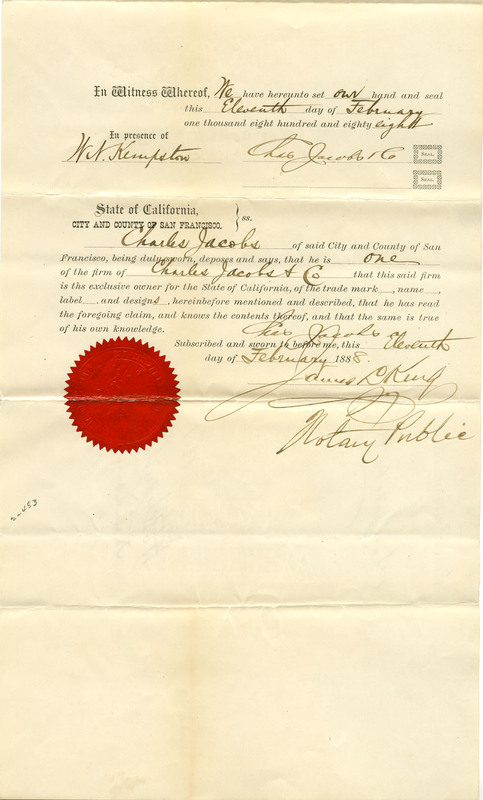 In Witness Whereof, We have hereunto set our hand and seal
this Eleventh day of February
one thousand eight hundred and eighty eight
In presence of
W. N. Kempston Chas Jacobs & Co
SEAL.
SEAL.
State of California,
CITY AND COUNTY OF SAN FRANCISCO. } ss.
Charles Jacobs of said City and County of San
Francisco, being duly sworn, deposes and says, that he is one
of the firm of Charles Jacobs & C that this said firm
is ths exclusive owner for the State of California, of the trade mark , name ,
label and designs , hereinbefore mentioned and described, that he has read
the foregoing claim, and knows the contents thereof, and that the same is true
of his own knowledge.
Chas Jacobs
Subscribed and sworn to before me, this Eleventh
day of February 1888.
James L King
Notary Public